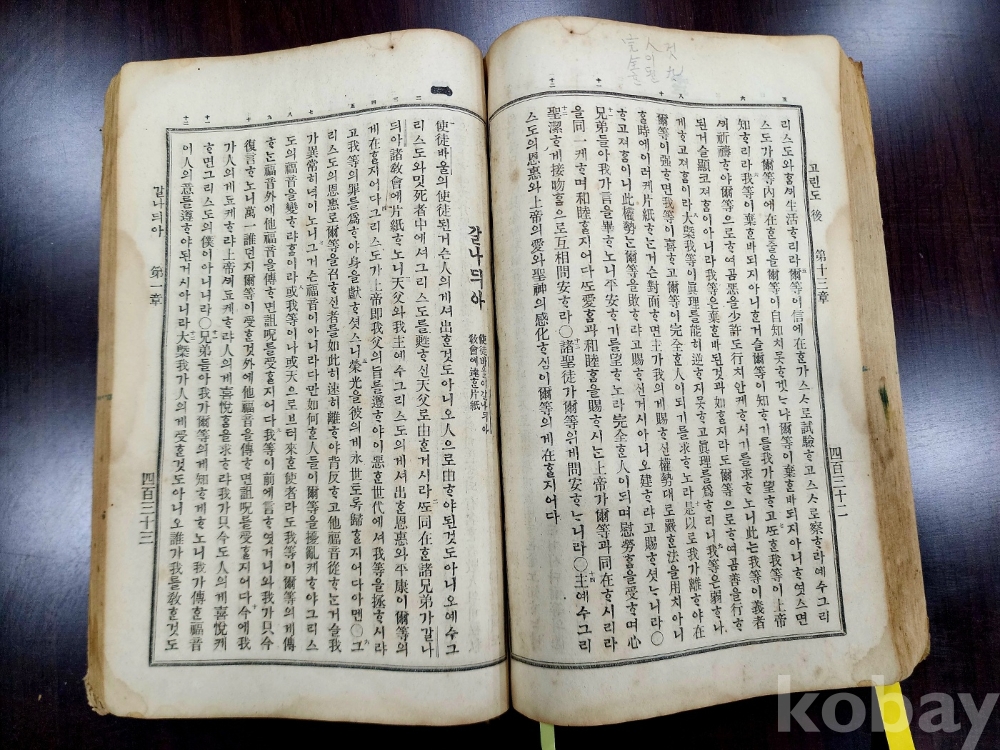 고린도 後 第十三章
四百三十二
리스도와ᄒᆞᆷᄭᅴ生活ᄒᆞ리라爾等이信에在ᄒᆞᆫ가스ᄉᆞ로試驗ᄒᆞ고스ᄉᆞ로察ᄒᆞ라예수그리
스도가爾等內에在ᄒᆞᆷ을爾等이自知치못ᄒᆞ겟ᄂᆞ냐爾等이棄ᄒᆞᆫ바되지아니ᄒᆞ엿스면
知ᄒᆞ리라我等이棄ᄒᆞᆫ바되지아니ᄒᆞᆫ거슬爾等이知ᄒᆞ기를我가望ᄒᆞ고ᄯᅩᄒᆞᆫ我等이上帝
ᄭᅴ祈禱ᄒᆞ야爾等으로ᄒᆞ여곰惡을少許도行치안케ᄒᆞ시기를求ᄒᆞ노니此ᄂᆞᆫ我等이義者
된거슬顯코져ᄒᆞᆷ이아니라我等은棄ᄒᆞᆫ바된것과如ᄒᆞᆯ지라도爾等으로ᄒᆞ여곰善을行ᄒᆞ
게ᄒᆞ고져ᄒᆞᆷ이라大槩我等이眞理를能히逆지못ᄒᆞ고眞理를爲ᄒᆞ리니我等은弱ᄒᆞ나
爾等이强ᄒᆞ면我等이喜ᄒᆞ고爾等이完全ᄒᆞᆫ人이되기를求ᄒᆞ노라是以로我가離ᄒᆞ야在
ᄒᆞᆯ時에이러케片紙ᄒᆞᄂᆞᆫ거슨對面ᄒᆞ면主가我의게賜ᄒᆞ신權勢대로嚴ᄒᆞᆫ法을用치아니
ᄒᆞ고져ᄒᆞᆷ이니此權勢ᄂᆞᆫ爾等을敗ᄒᆞ라고賜ᄒᆞ신거시아니오建ᄒᆞ라고賜ᄒᆞ셧ᄂᆞ니라○
兄弟들아我가言을畢ᄒᆞ노니平安ᄒᆞ기를望ᄒᆞ노라完全ᄒᆞᆫ人이되며慰勞ᄒᆞᆷ을受ᄒᆞ며心
을同一케ᄒᆞ며和睦ᄒᆞᆯ지어다ᄯᅩ愛ᄒᆞᆷ과和睦ᄒᆞᆷ을賜ᄒᆞ시ᄂᆞᆫ上帝가爾等과同在ᄒᆞ시리라
聖潔ᄒᆞ게接吻ᄒᆞᆷ으로互相問安ᄒᆞ라○諸聖徒가爾等의게問安ᄒᆞᄂᆞ니라○主예수그리
스도의恩惠와上帝의愛와聖神의感化ᄒᆞ심이爾等의게在ᄒᆞᆯ지어다
갈나듸아
使徒바울이갈나듸아
敎會에送ᄒᆞᆫ片紙
使徒바울의使徒된거슨人의게셔出ᄒᆞᆫ것도아니오人으로由ᄒᆞ야된것도아니오예수그
리스도와밋死者中에셔그리스도를甦ᄒᆞ신天父로由ᄒᆞᆫ거시라ᄯᅩ同在ᄒᆞᆫ諸兄弟가갈나
듸아諸敎會에片紙ᄒᆞ노니天父와我主예수그리스도의게셔出ᄒᆞᆫ恩惠와平康이爾等의
게在ᄒᆞᆯ지어다그리스도가上帝即我父의旨를遵ᄒᆞ야이惡ᄒᆞᆫ世代에셔我等을拯ᄒᆞ시랴
고我等의罪를爲ᄒᆞ야身을獻ᄒᆞ셧스니榮光을彼의게永世토록歸ᄒᆞᆯ지어다아멘○그
리스도의恩惠로爾等을召ᄒᆞ신者를如此히速히離ᄒᆞ야背反ᄒᆞ고他福音從ᄒᆞᄂᆞᆫ거슬我
가異常히넉이노니그거슨福音이아니라다만如何ᄒᆞᆫ人들이爾等을擾亂케ᄒᆞ야그리스
도의福音을變ᄒᆞ랴ᄒᆞᆷ이라或我等이나或天으로브터來ᄒᆞᆫ使者라도我等이爾等의게傳
ᄒᆞᄂᆞᆫ福音外에他福音을傳ᄒᆞ면詛呪를受ᄒᆞᆯ지어다我等이前에言ᄒᆞ엿거니와我가只今
復言ᄒᆞ노니萬一誰던지爾等이受ᄒᆞᆫ것外에他福音을傳ᄒᆞ면詛呪를受ᄒᆞᆯ지어다今에我
가人의게됴케ᄒᆞ랴上帝ᄭᅴ됴케ᄒᆞ랴人의게喜悅ᄒᆞᆷ을求ᄒᆞ랴我가只今도人의게喜悅케
ᄒᆞ면그리스도의僕이아니니라○兄弟들아我가爾等의게知ᄒᆞ게ᄒᆞ노니我가傳ᄒᆞᆫ福音
이人의意를遵ᄒᆞ야된거시아니라大槩我가人의게受ᄒᆞᆫ것도아니오誰가我를敎ᄒᆞᆫ것도
갈나듸아 第一章
四百三十三
kobay